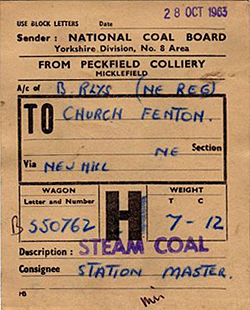 USE BLOCK LETTERS Date 28 OCT 1963
Sender : NATIONAL COAL BOARD
Yorkshire Division, No. 8 Area
FROM PECKFIELD COLLIERY
MICKLEFIELD
A/c of B. RLYS (NE REG)
TO CHURCH FENTON.
NE Section
Via NEW HILL
WAGON WEIGHT
Letter and Number H T C
B 550762 7-12
Description : STEAM COAL
Consignee STATION MASTER.